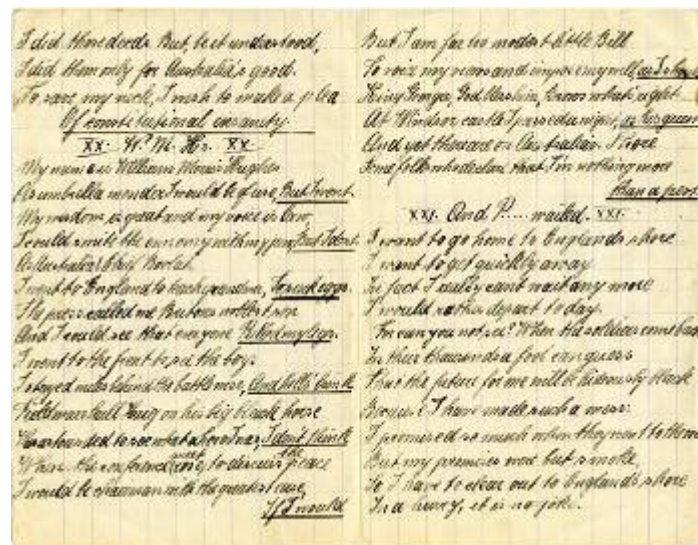 I did those deeds. But, best understood,
I did them only for Australia's good.
To save my neck, I wish to make a plea
Of constitutional insanity.
XX. W. M. H. XX.
My name is William Morris Hughes
As umbrella mender I would be of use, But I wont.
My wisdom is great and my voice is law,
I could smite the enemy with my jaw, But I dont.
As Australia's Chief
I went to England to teach grandma, To suck eggs.
The press called me Britons noblest son
And I could see that everyone Pulled my legs.
I went to the front to see the boys
I stayed miles behind the battle noise, And didn't
Field marshall Haig on his big black horse
to see what a force I was, I don't think
When the conference meet to discuss the peace
I would be chairman with the greatest ease,
If I would
But I am far too modest Little Bill
To voice my views and impose my will, as I
King George, God bless him, knows what's right
At Windsor castle I passed a night, as his guest
And yet there are on Australia's shore
Some folks who declare that I'm nothing more
than a
XXX. And P.... wailed. XXX.
I want to go home to Englands shore
I want to get quickly away
In fact I really cant wait any more
I would rather depart to day.
For can you not see? When the soldiers come back
In their thousands a fool can guess
That the future for me will be hideously black
Because I have made such a mess.
I promised so much when they went to the
But my promises were but smoke,
So I have to clear out to Englands shore
In a hurry, it is no joke.